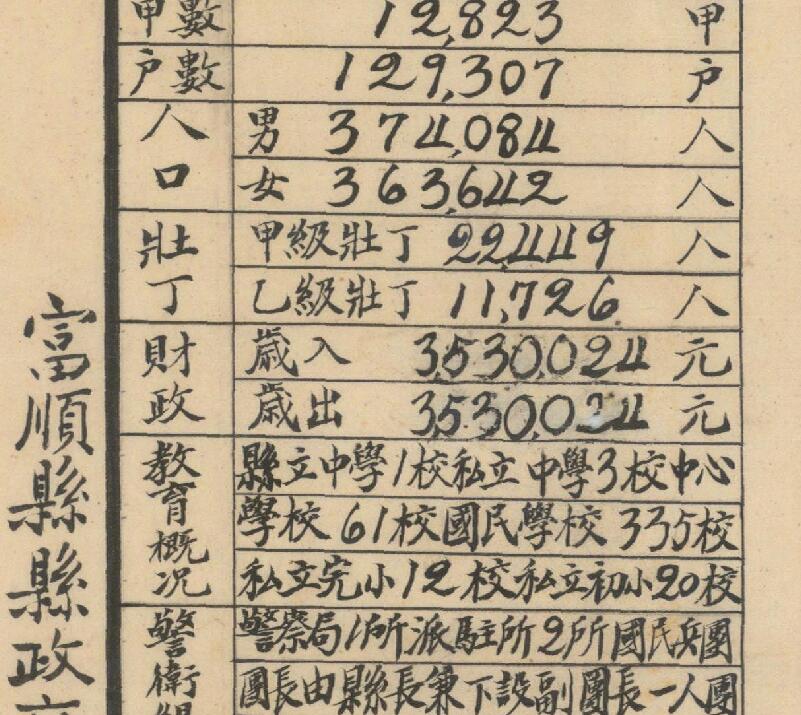 甲數 12,823 甲
戶數 129,307 戶
人口 男 374,084 人
女 363,642 人
壯丁 甲級壯丁 22,449 人
乙級壯丁 11,726 人
財政 歲入 3,530,024 元
歲出 3,530,024 元
教育概況 縣立中學1校私立中學3校中心
學校61校國民學校335校
私立完小12校私立初小20校
警衛組 警察局1所派駐所2所國民兵團
團長由縣長兼下設副團長一人團
富順縣縣政